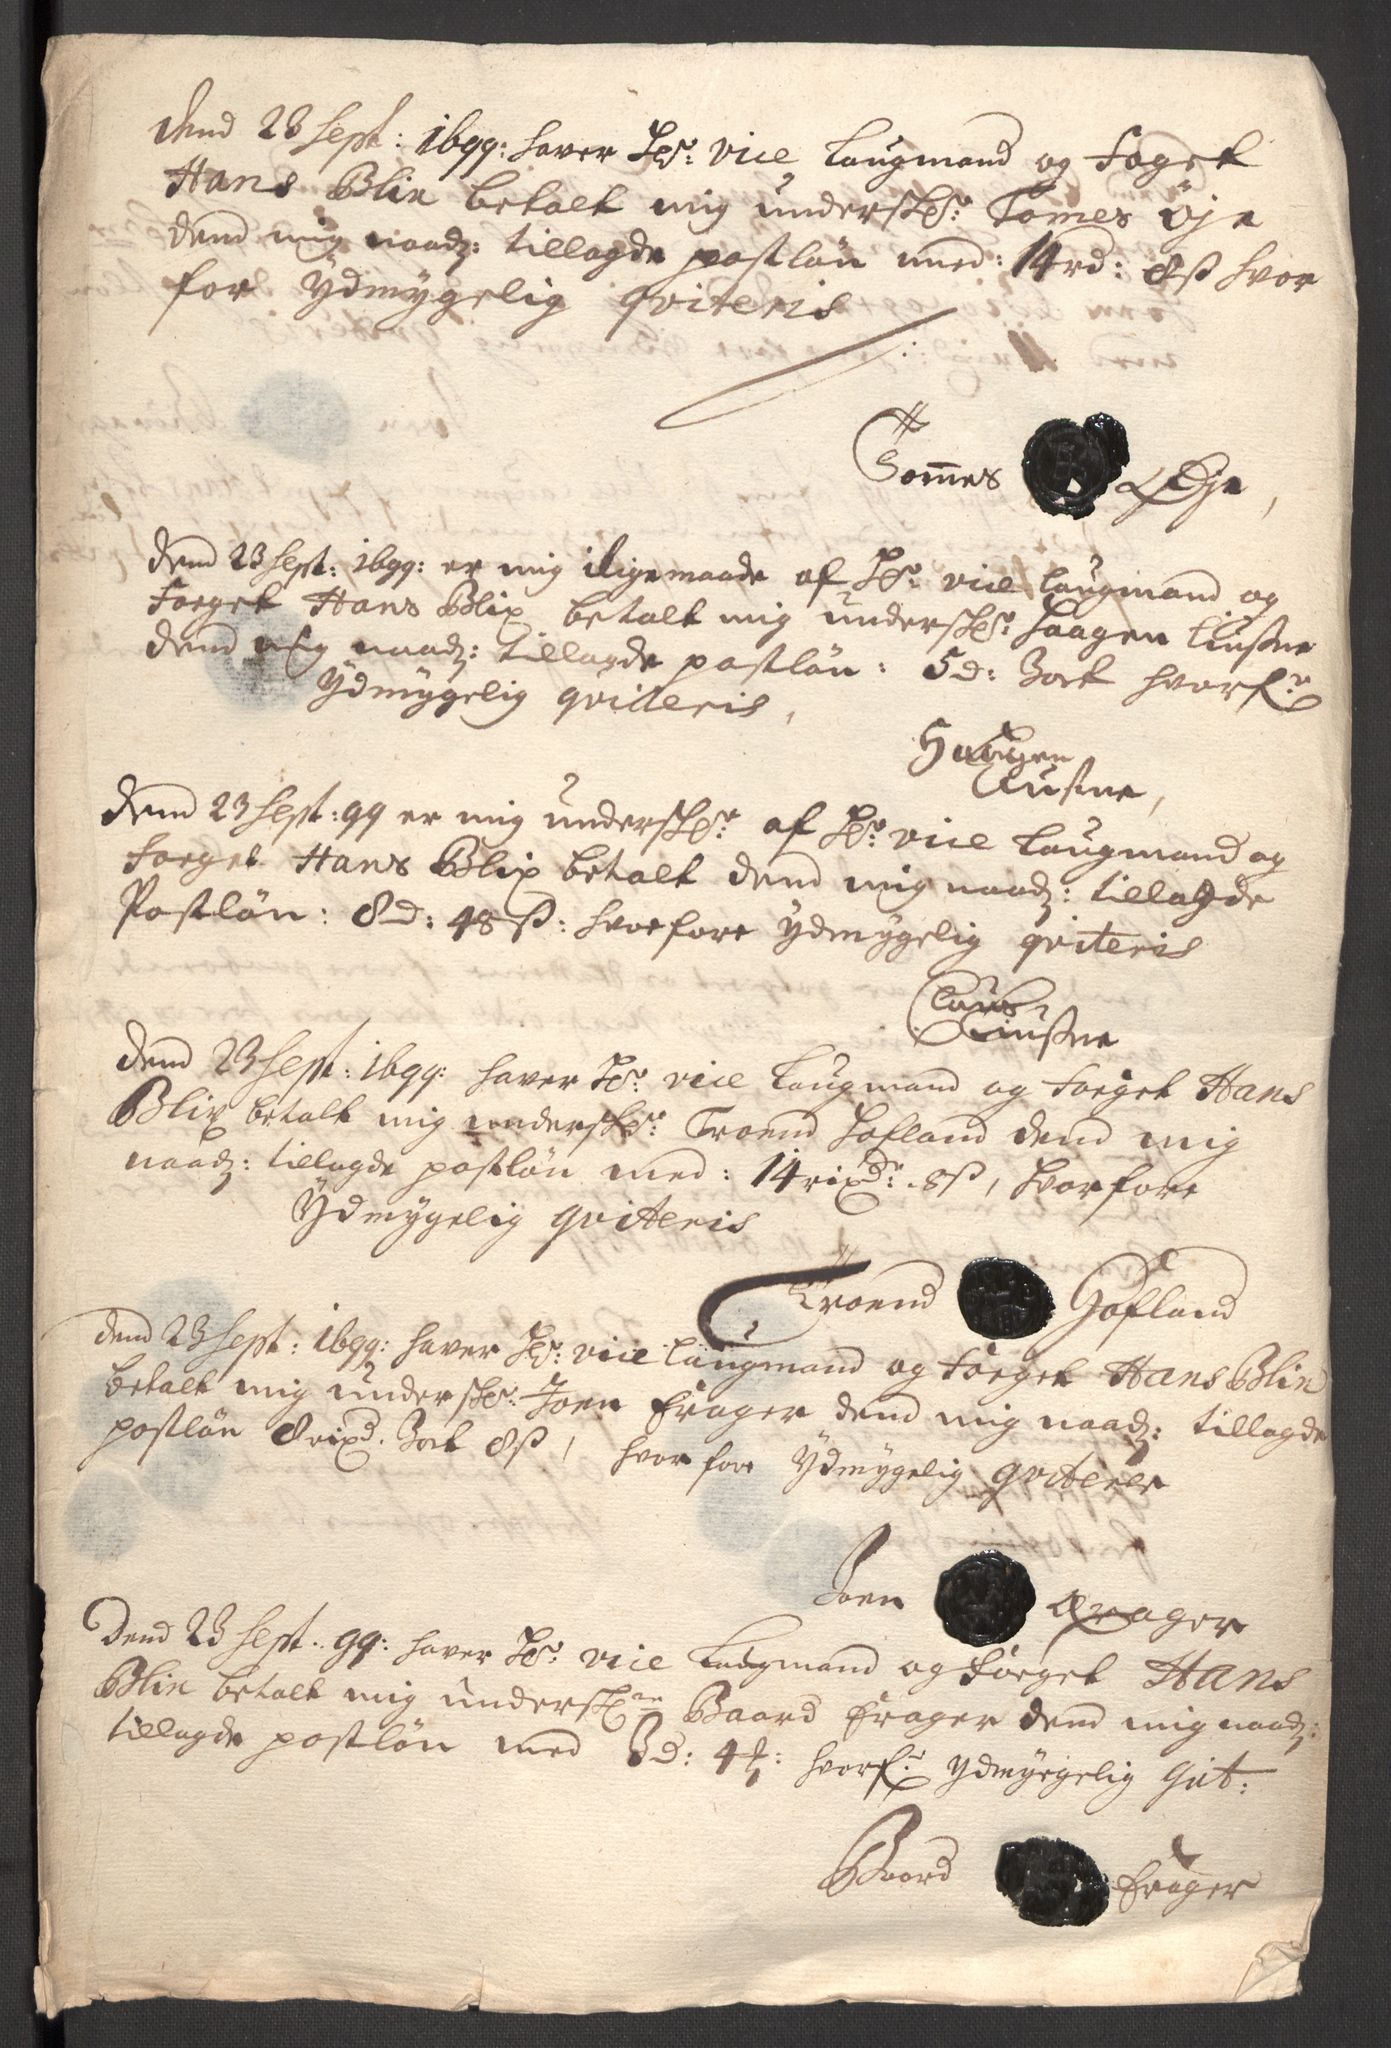 Dend 23 Sept: 1699: haver Sr: vice Laugmand og foget
Hans Blix betalt mig undersk: Tomes Øje
dend mig naad: tillagde postløn med: 14 rd: 8 ß hvor
for Ydmygelig qviteris
Tommes Øje,
Dend 23 Sept: 1699: er mig iligemaade af Sr: vice Laugmand og
Foeget Hans Blix betalt mig undersk: Haagen Liusne
dend mig naad: tillagde postløn: 5 d: 3 ort hvorfr
Ydmygelig qvitteris,
Haagen
Liusne,
Dend 23 Sept: 99 er mig undersk: af Sr: vice Laugmand og
Foeget Hans Blix betalt dend mig naad: tillagde
Postløn: 8 d: 48 ß: hvorfore ydmygelig qviteris
Claus
Liusne
Dend 23 Sept: 1699: haver Sr: vice Laugmand og foeget Hans
Blix betalt mig undersk: Troend Hofland dend mig
naad: tillagde postløn med: 14 rixdr: 8 ß, hvorfore
Ydmygelig qviteris
Troend Hofland
Dend 23 Sept: 1699: haver Sr: vice Laugmand og foeget Hans Blix
betalt mig undersk: Joen Krager dend mig naad: tillagde
postløn 8 rixd. 3 ort 8 ß, hvorfore Ydmygelig qviterer
Joen Krager
Dend 23 Sept: 99: haver Sr: vice Laugmand og foeget Hans
Blix betalt mig undersk: Baard Krager dend mig naad:
tillagde postløn med 3 d: 4 ß: hvorfr Ydmygelig Qvit:
Baard Krager